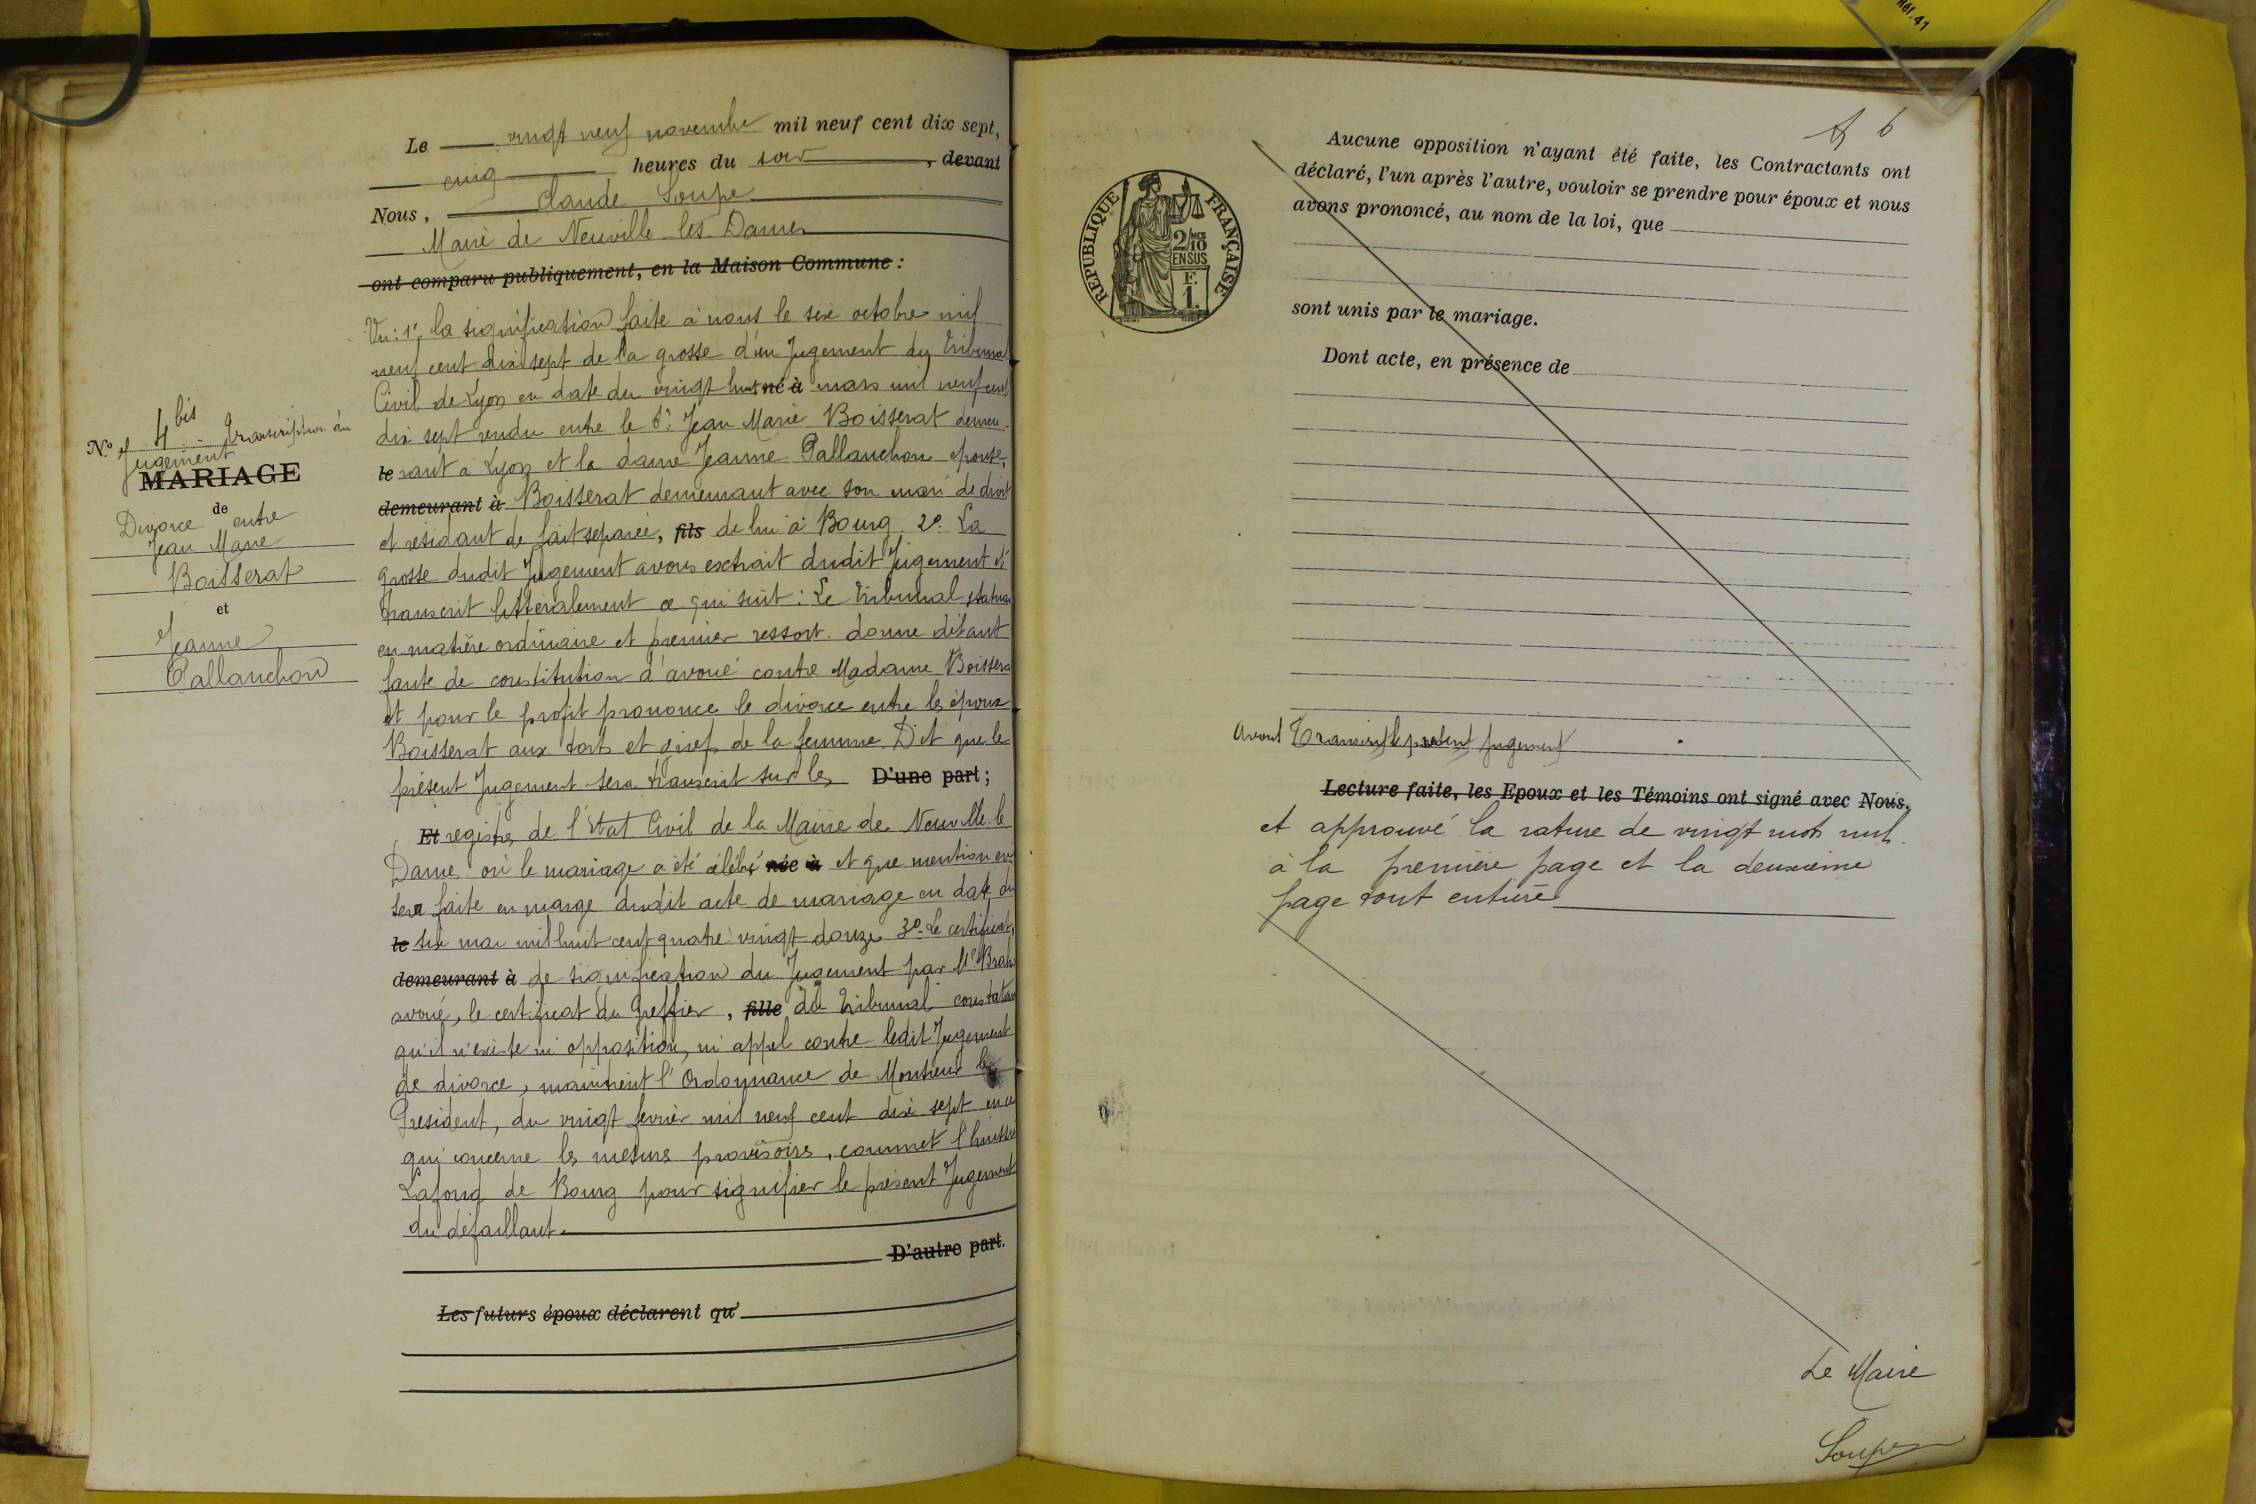 N° 4 bis Transcription du
Jugement
MARIAGE
de
Divorce entre
Jean Marie
Boisserat
et
Jeanne
Pallanchon
Le vingt neuf novembre mil neuf cent dix sept,
cinq heures du soir, devant
Nous, Claude Soupe
Maire de Neuville-les-Dames
ont comparu publiquement, en la Maison Commune :
Vu : 1° la signification faite à nous le six octobre mil
neuf cent dix sept de la grosse d'un Jugement du tribunal
Civil de Lyon en date du vingt huit né à mars mil neuf cent
dix sept rendu entre le Sr Jean Marie Boisserat demeu-
le rant à Lyon et la dame Jeanne Pallanchon épouse
demeurant à Boisserat demeurant avec son mari de droit
et résidant de fait séparée, fils de lui à Bourg. 2° La
grosse dudit Jugement avons extrait dudit Jugement et
transcrit littéralement ce qui suit : Le tribunal statuant
en matière ordinaire et premier ressort. donne défaut
faute de constitution d'avoué contre Madame Boissera
et pour le profit prononce le divorce entre les époux
Boisserat aux torts et griefs de la femme. Dit que le
présent Jugement sera transcrit sur les D'une part ;
Et registres de l'Etat Civil de la Mairie de Neuville-le
Dames où le mariage a été célébré née à et que mention en
sera faite en marge dudit acte de mariage en date du
le six mai mil huit cent quatre vingt douze 3° Le certificat
demeurant à de signification du Jugement par Me
avoué, le certificat du Greffier, fille du tribunal constatan
qu'il n'existe ni opposition, ni appel contre ledit Jugement
de divorce, maintient l'Ordonnance de Monsieur le
Président, du vingt février mil neuf cent dix sept en ce
qui concerne les mesures provisoires, commet l'huissier
Lafond de Bourg pour signifier le présent Jugement
du défaillant.
D'autre part.
Les futurs époux déclarent qu'
6
REPUBLIQUE FRANÇAISE
2/10 MES
EN SUS
F.
1.
Aucune opposition n'ayant été faite, les Contractants ont
déclaré, l'un après l'autre, vouloir se prendre pour époux et nous
avons prononcé, au nom de la loi, que
sont unis par le mariage.
Dont acte, en présence de
avons Transcrit le présent Jugement
Lecture faite, les Epoux et les Témoins ont signé avec Nous.
et approuvé la rature de vingt mots nuls
à la première page et la deuxième
page tout entière
Le Maire
Soupe
Réf. 41